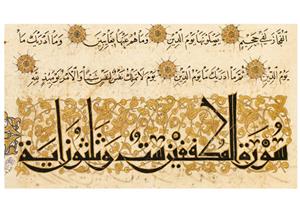 الفُجَّارَ لَفِي جَحِيمٍ يَصْلَوْنَهَا يَوْمَ الدِّينِ وَمَا هُمْ عَنْهَا بِغَائِبِينَ وَمَا أَدْرَىكَ مَا
يَوْمُ الدِّينِ ثُمَّ مَا أَدْرَىكَ مَا يَوْمُ الدِّينِ يَوْمَ لَا تَمْلِكُ نَفْسٌ لِنَفْسٍ شَيْئًا وَالْأَمْرُ يَوْمَئِذٍ لِلَّهِ
سورة المطففين ست وثلثون آية